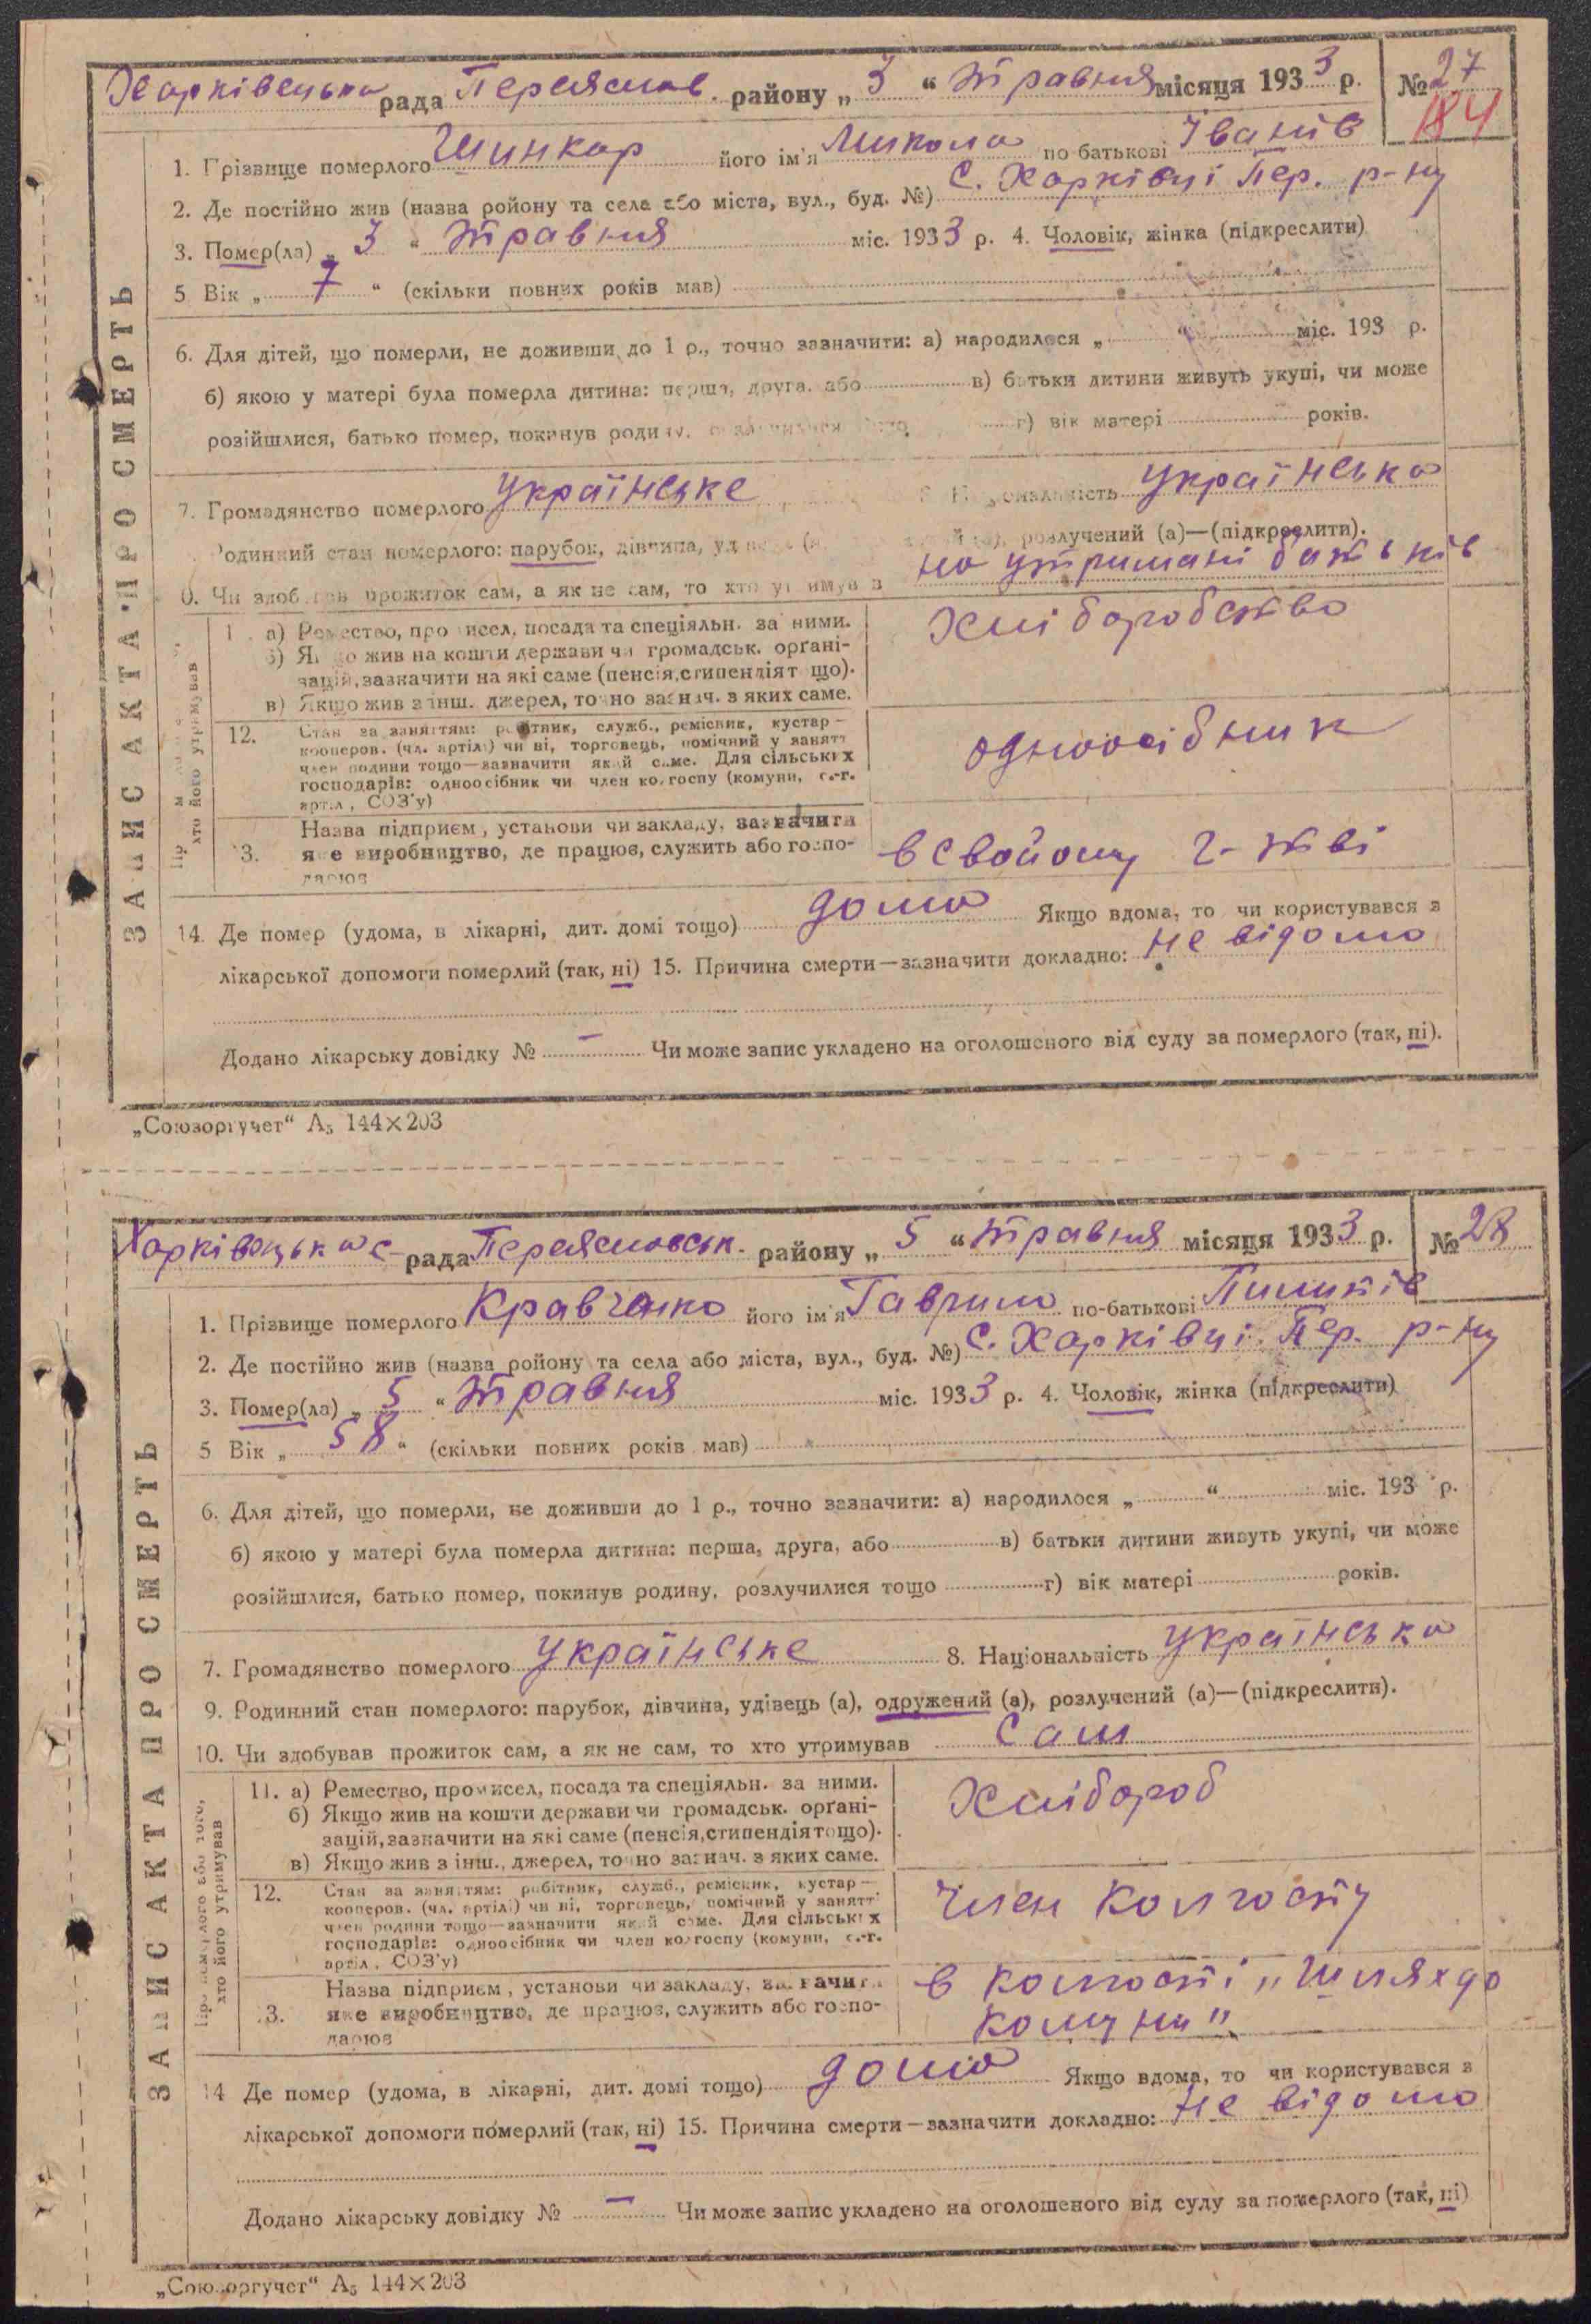 Харківецька рада Переяслав. району „ 3 “ травня місяця 1933 р. № 27
184
1. Прізвище померлого Шинкар його ім'я Микола по батькові Іванів
2. Де постійно жив (назва ройону та села або міста, вул., буд. №) с. Харківці Пер. р-ну
3. Помер(ла) „ 3 “ травня міс. 1933 р. 4. Чоловік, жінка (підкреслити)
5 Вік „ 7 “ (скільки повних років мав)
6. Для дітей, що померли, не доживши до 1 р., точно зазначити: а) народилося „ “ міс. 193 р.
б) якою у матері була померла дитина: перша, друга, або в) батьки дитини живуть укупі, чи може
розійшлися, батько помер, покинув родину, г) вік матері років.
7. Громадянство померлого українське Національність українська
Родинний стан померлого: парубок, дівчина, розлучений (а)—(підкреслити).
0. Чи здобував прожиток сам, а як не сам, то хто утримував на утримані батьків
ЗАПИС АКТА ПРО СМЕРТЬ
хто його утримував
1 . а) Ремество, промисел, посада та спеціяльн. за ними. Хліборобство
б) Якщо жив на кошти держави чи громадськ. орґані-
зацій, зазначити на які саме (пенсія, стипендіят що).
в) Якщо жив з інш. джерел, точно зазнач. з яких саме.
12. Стан за заняттям: робітник, служб., ремісник, кустар— одноосібник
кооперов. (чл. артілі) чи ні, торговець, помічний у занятт
член родини тощо—зазначити який саме. Для сільських
господарів: одноосібник чи член колгоспу (комуни, с.-г.
артіл, СОЗ'у)
Назва підприєм, установи чи закладу, зазначити
3. яке виробництво, де працюв, служить або госпо- в свойому г-тві
дарюв
14. Де помер (удома, в лікарні, дит. домі тощо) дома Якщо вдома, то чи користувався з
лікарської допомоги померлий (так, ні) 15. Причина смерти—зазначити докладно: не відомо
Додано лікарську довідку № — Чи може запис укладено на оголошеного від суду за померлого (так, ні).
„Союзоргучет“ А₅ 144×203
Харківецька с- рада Переясловськ. району „ 5 “ травня місяця 1933 р. № 28
1. Прізвище померлого Кравченко його ім'я Гаврило по-батькові Пилипів
2. Де постійно жив (назва ройону та села або міста, вул., буд. №) с. Харківці Пер. р-ну
3. Помер(ла) „ 5 “ травня міс. 1933 р. 4. Чоловік, жінка (підкреслити)
5 Вік „ 58 “ (скільки повних років мав)
6. Для дітей, що померли, не доживши до 1 р., точно зазначити: а) народилося „ “ міс. 193 р.
б) якою у матері була померла дитина: перша, друга, або в) батьки дитини живуть укупі, чи може
розійшлися, батько помер, покинув родину, розлучилися тощо г) вік матері років.
7. Громадянство померлого українське 8. Національність українська
9. Родинний стан померлого: парубок, дівчина, удівець (а), одружений (а), розлучений (а)—(підкреслити).
10. Чи здобував прожиток сам, а як не сам, то хто утримував сам
ЗАПИС АКТА ПРО СМЕРТЬ
Про померлого або того,
хто його утримував
11. а) Ремество, промисел, посада та спеціяльн. за ними. Хлібороб
б) Якщо жив на кошти держави чи громадськ. орґані-
зацій, зазначити на які саме (пенсія, стипендія тощо).
в) Якщо жив з інш., джерел, точно зазнач. з яких саме.
12. Стан за заняттям: робітник, служб., ремісник, кустар— член колгоспу
кооперов. (чл. артілі) чи ні, торговець, помічний у занятт
член родини тощо—зазначити який саме. Для сільських
господарів: одноосібник чи член колгоспу (комуни, с.-г.
артіл, СОЗ'у)
Назва підприєм, установи чи закладу, зазначити в колгоспі „Шлях до
3. яке виробництво, де працюв, служить або госпо- комуни“
дарюв
14 Де помер (удома, в лікарні, дит. домі тощо) дома Якщо вдома, то чи користувався з
лікарської допомоги померлий (так, ні) 15. Причина смерти—зазначити докладно: не відомо
Додано лікарську довідку № — Чи може запис укладено на оголошеного від суду за померлого (так, ні)
„Союзоргучет“ А₅ 144×203